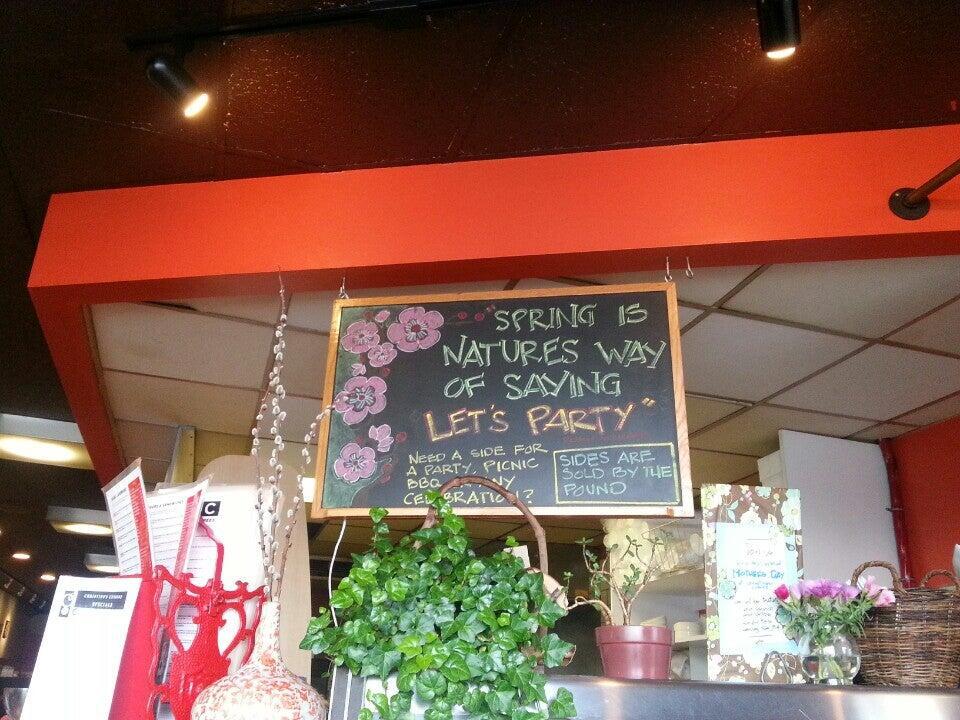 "SPRING IS
NATURES WAY
OF SAYING
LET'S PARTY"
NEED A SIDE FOR
A PARTY, PICNIC
BBQ NY
CELEBRATION?
SIDES ARE
SOLD BY THE
POUND
C
SPECIALS
MOTHERS DAY